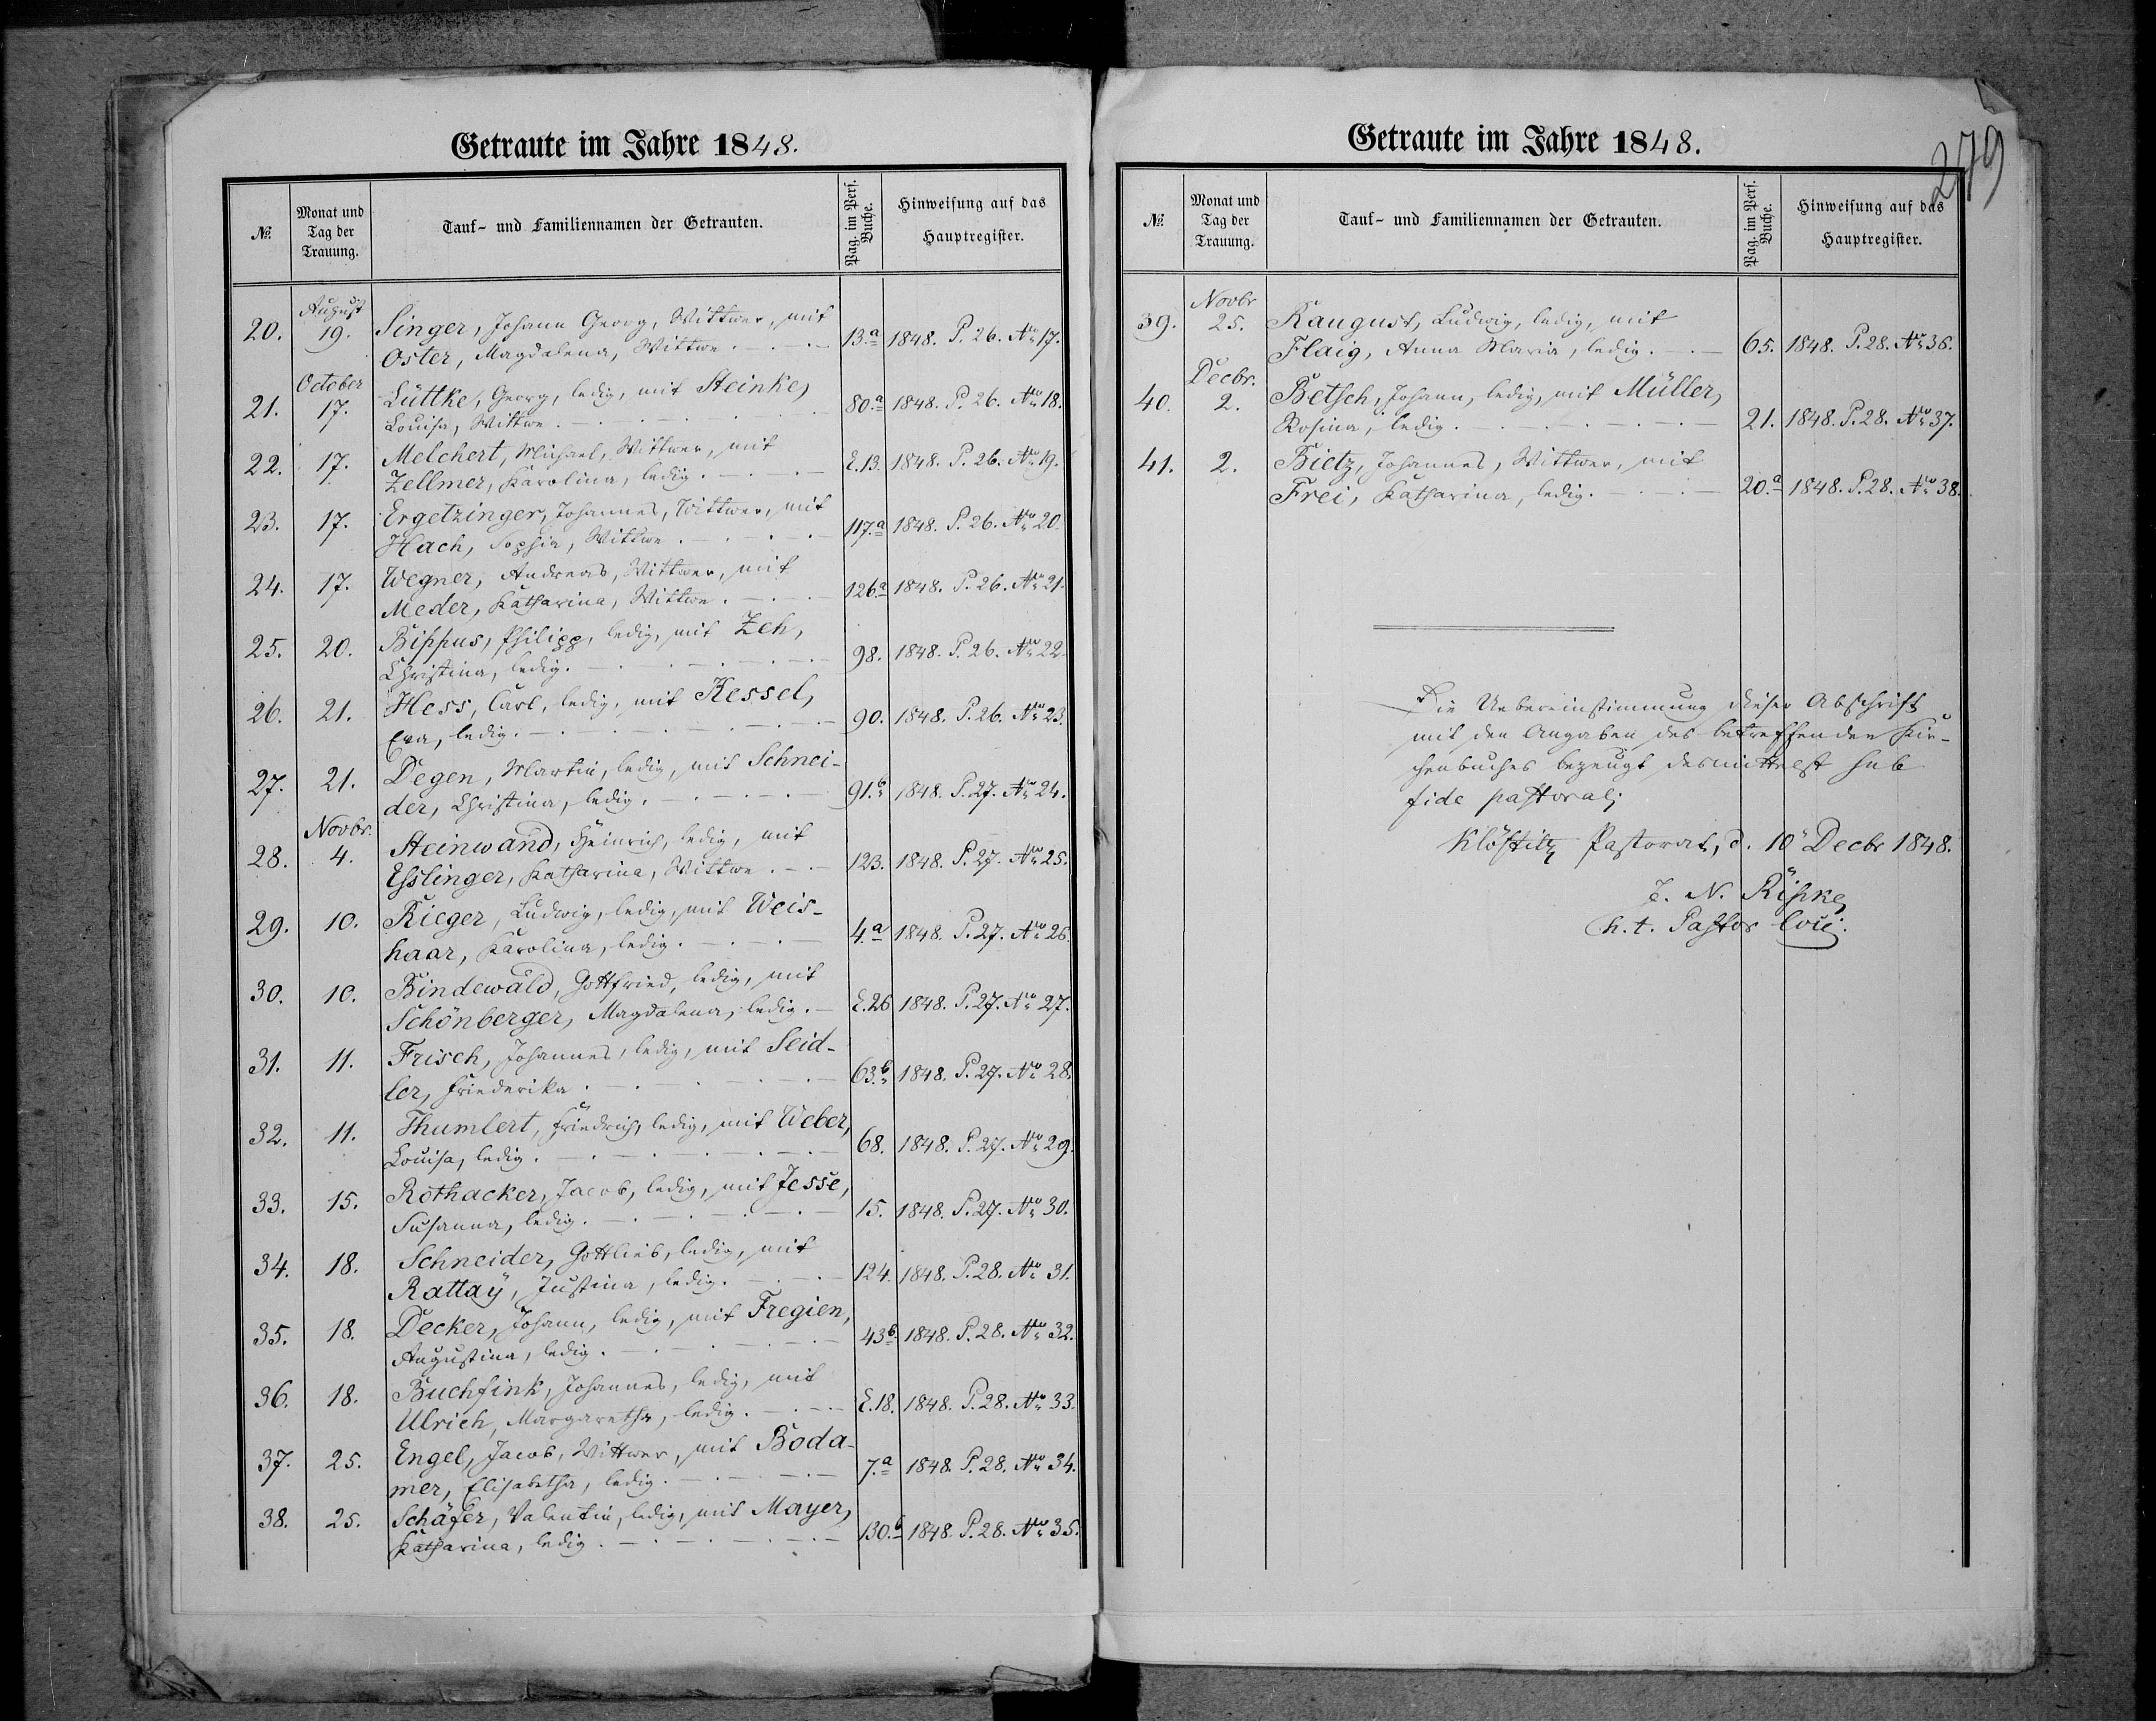 Getraute im Jahre 1848.
№. Monat und Tag der Trauung. Tauf- und Familiennamen der Getrauten. Pag. im Pers. Buche. Hinweisung auf das Hauptregister.
August
20. 19. Singer, Johann Georg, Wittwer, mit
Oster, Magdalena, Wittwe. 13.a 1848. P. 26. Nro 17.
October
21. 17. Lüttke, Georg, ledig, mit Steinke,
Louisa, Wittwe. 80.a 1848. P. 26. Nro 18.
22. 17. Melchert, Michael, Wittwer, mit
Zellmer, Karolina, ledig. E.13. 1848. P. 26. Nro 19.
23. 17. Ergetzinger, Johannes, Wittwer, mit
Hach, Sophia, Wittwe. 117.a 1848. P. 26. Nro 20.
24. 17. Wegner, Andreas, Wittwer, mit
Meder, Katharina, Wittwe. 126.a 1848. P. 26. Nro 21.
25. 20. Bippus, Philipp, ledig, mit Zeh,
Christina, ledig. 98. 1848. P. 26. Nro 22.
26. 21. Hess, Carl, ledig, mit Kessel,
Eva, ledig. 90. 1848. P. 26. Nro 23.
27. 21. Degen, Martin, ledig, mit Schnei-
der, Christina, ledig. 91.b 1848. P. 27. Nro 24.
Novbr.
28. 4. Steinwand, Heinrich, ledig, mit
Esslinger, Katharina, Wittwe. 123. 1848. P. 27. Nro 25.
29. 10. Rieger, Ludwig, ledig, mit Weis-
haar, Karolina, ledig. 4.a 1848. P. 27. Nro 26.
30. 10. Bindewald, Gottfried, ledig, mit
Schönberger, Magdalena, ledig. E.26 1848. P. 27. Nro 27.
31. 11. Frisch, Johannes, ledig, mit Seid-
ler, Friederika. 63.b 1848. P. 27. Nro 28.
32. 11. Thumlert, Friedrich, ledig, mit Weber,
Louisa, ledig. 68. 1848. P. 27. Nro 29.
33. 15. Rothacker, Jacob, ledig, mit Jesse,
Susanna, ledig. 15. 1848. P. 27. Nro 30.
34. 18. Schneider, Gottlieb, ledig, mit
Rattaÿ, Justina, ledig. 124. 1848. P. 28. Nro 31.
35. 18. Decker, Johann, ledig, mit Fregien,
Augustina, ledig. 43b 1848. P. 28. Nro 32.
36. 18. Buchfink, Johannes, ledig, mit
Ulrich, Margaretha, ledig. E.18. 1848. P. 28. Nro 33.
37. 25. Engel, Jacob, Wittwer, mit Boda-
mer, Elisabetha, ledig. 7.a 1848. P. 28. Nro 34.
38. 25. Schäfer, Valentin, ledig, mit Mayer,
Katharina, ledig. 130.b 1848. P. 28. Nro 35.
279
Getraute im Jahre 1848.
№. Monat und Tag der Trauung. Tauf- und Familiennamen der Getrauten. Pag. im Pers. Buche. Hinweisung auf das Hauptregister.
Novbr
39. 25. Raugust, Ludwig, ledig, mit
Flaig, Anna Maria, ledig. 65. 1848. P. 28. Nro 36.
Decbr.
40. 2. Betsch, Johann, ledig, mit Müller,
Rosina, ledig. 21. 1848. P. 28. Nro 37.
41. 2. Bietz, Johannes, Wittwer, mit
Frei, Katharina, ledig. 20.a 1848. P. 28. Nro 38.
Die Uebereinstimmung dieser Abschrift
mit den Angaben des betreffenden Kir-
chenbuches bezeugt desmittelst sub
fide pastorali
Klöstitz Pastorat, d. 10n Decbr 1848.
J. N. Rispke
h. t. Pastor loci.